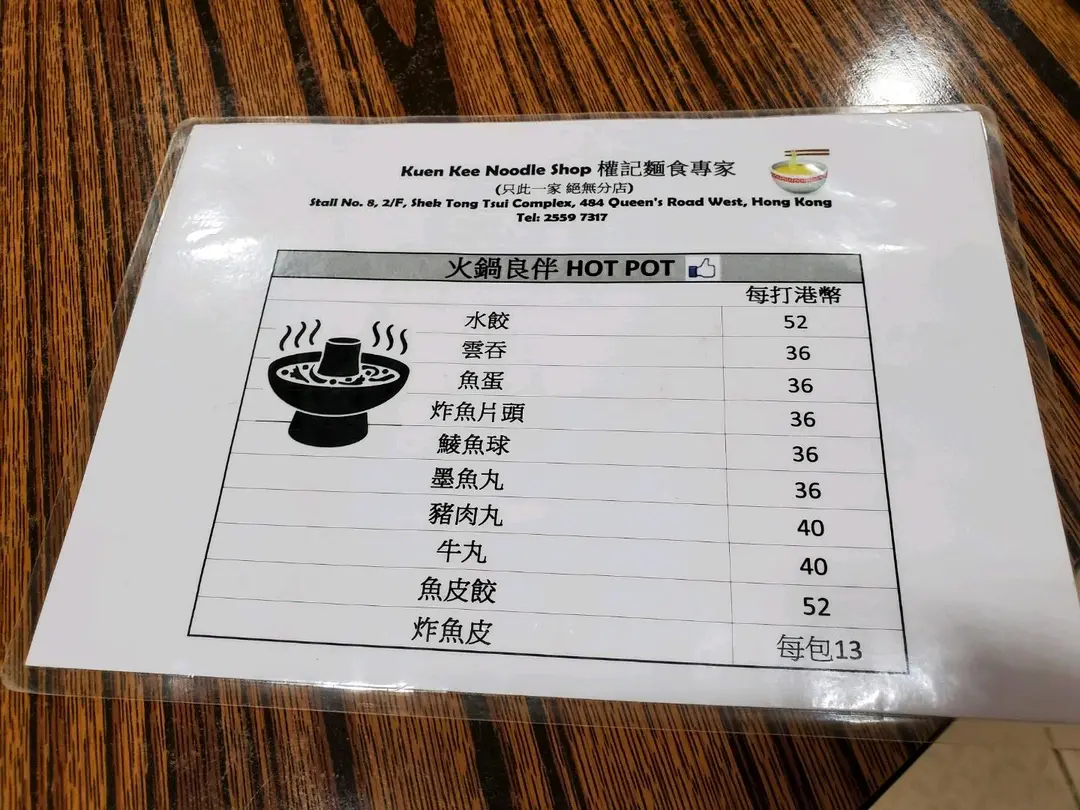 Kuen Kee Noodle Shop 權記麵食專家
(只此一家 絕無分店)
Stall No. 8, 2/F, Shek Tong Tsui Complex, 484 Queen's Road West, Hong Kong
Tel: 2559 7317
火鍋良伴 HOT POT
每打港幣
水餃 52
雲吞 36
魚蛋 36
炸魚片頭 36
鯪魚球 36
墨魚丸 36
豬肉丸 40
牛丸 40
魚皮餃 52
炸魚皮 每包13